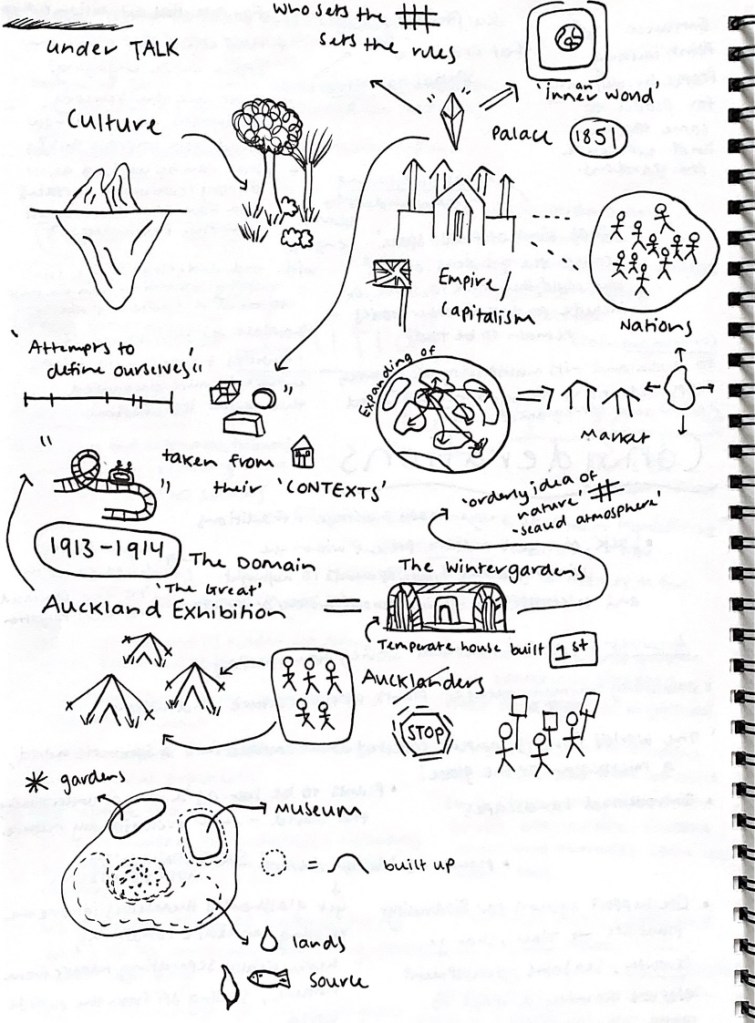 under TALK
Who sets the
sets the rules
'an
inner world'
Culture
Palace 1851
Empire/
Capitalism
Nations
'Attempts to
define ourselves'
Expanding of
Market
taken from
their 'CONTEXTS'
'orderly idea of
nature'
'sealed atmosphere'
1913-1914 The Domain
'The Great'
Auckland Exhibition
The Wintergardens
Temperate house built 1st
Aucklanders
STOP
gardens
Museum
= built up
lands
source